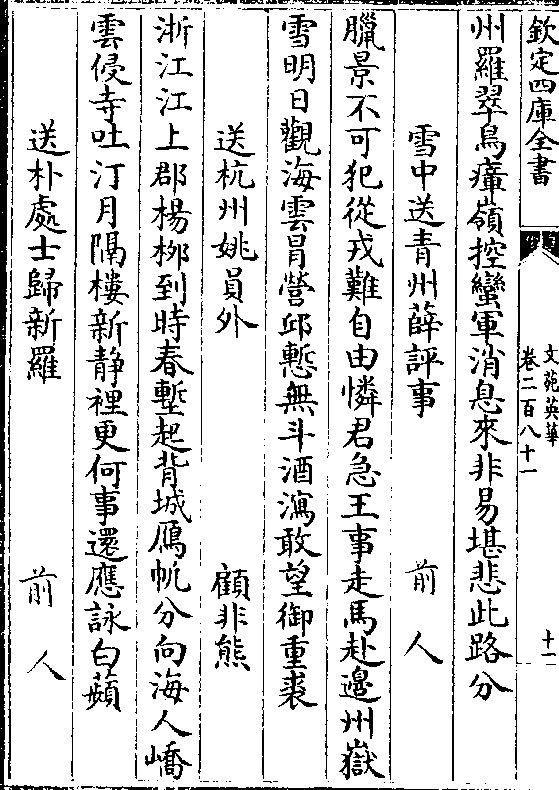 欽定四庫全書
文苑英華
卷二百八十一
十一
州羅翠鳥瘴嶺控蠻軍消息來非易堪悲此路分
雪中送青州薛評事 前人
臘景不可犯從戎難自由憐君急王事走馬赴邊州嶽
雪明日觀海雲冐營邱慙無斗酒瀉敢望御重裘
送杭州姚員外 顧非熊
浙江江上郡楊栁到時春塹起背城鴈帆分向海人嶠
雲侵寺吐汀月隔樓新静裡更何事還應詠白蘋
送朴處士歸新羅 前人